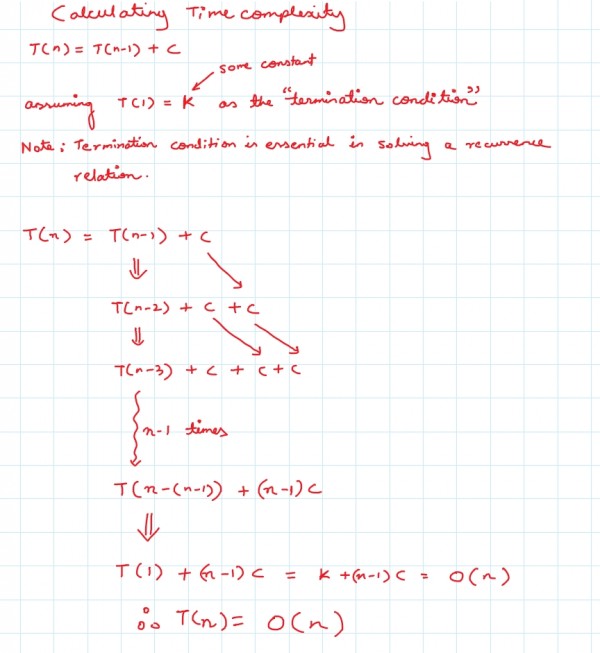 Calculating Time complexity
T(n) = T(n-1) + C
some constant
assuming T(1) = K as the "termination condition"
Note: Termination condition is essential in solving a recurrence
relation.
T(n) = T(n-1) + C
⇓
T(n-2) + C + C
⇓
T(n-3) + C + C + C
n-1 times
T(n-(n-1)) + (n-1)C
⇓
T(1) + (n-1)C = K + (n-1)C = O(n)
∴ T(n) = O(n)